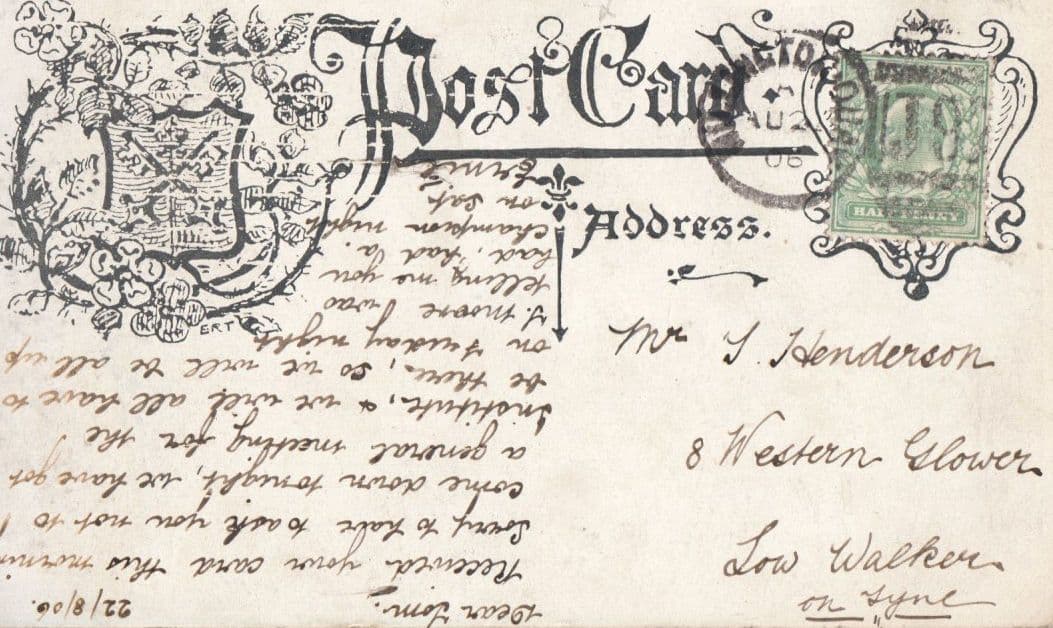 Post Card
Address.
HALF PENNY
AU 2
06
ERT
Mr T. Henderson
8 Western Glower
Low Walker.
on Tyne
22/8/06.
Dear Tom.
Received your card this mornin
Sorry to have to ask you not to
come down tonight, we have got
a general meeting for the
Institute, & we will all have to
be there, so we will be all up
on Friday night.
T. Moore was
telling me you
had, had a
champion night
on Sat
Ernie